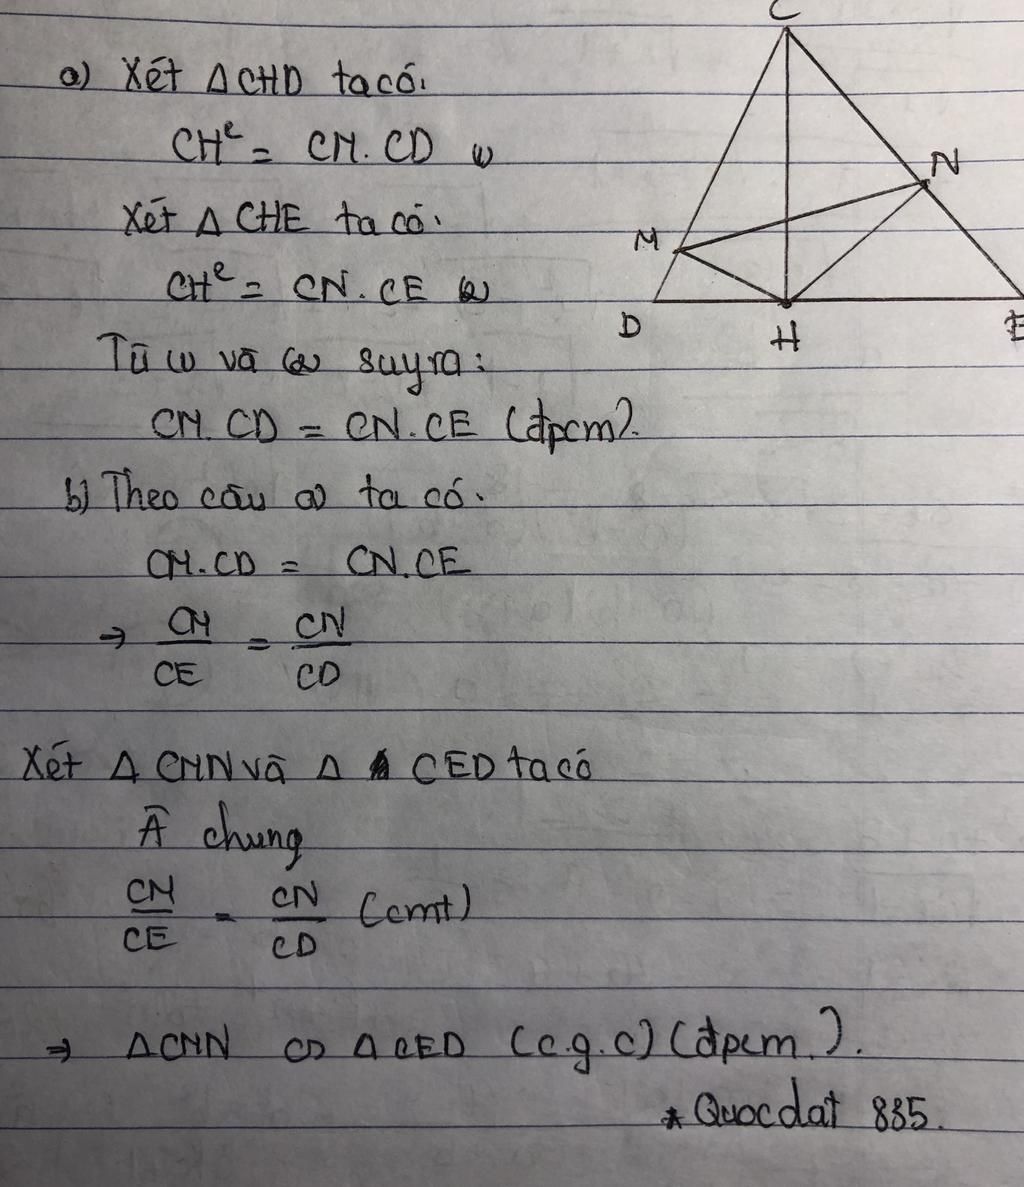 C
a) Xét ΔCHD ta có:
CH² = CM.CD (1)
N
Xét ΔCHE ta có:
M
CH² = CN.CE (2)
D
H
E
Từ (1) và (2) suy ra:
CM.CD = CN.CE (đpcm).
b) Theo câu a) ta có:
CM.CD = CN.CE
→ CM/CE = CN/CD
Xét Δ CMN và Δ CED ta có
Â chung
CM/CE = CN/CD (cmt)
⇒ ΔCMN ∽ ΔCED (c.g.c) (đpcm.).
* Quocdat 885.